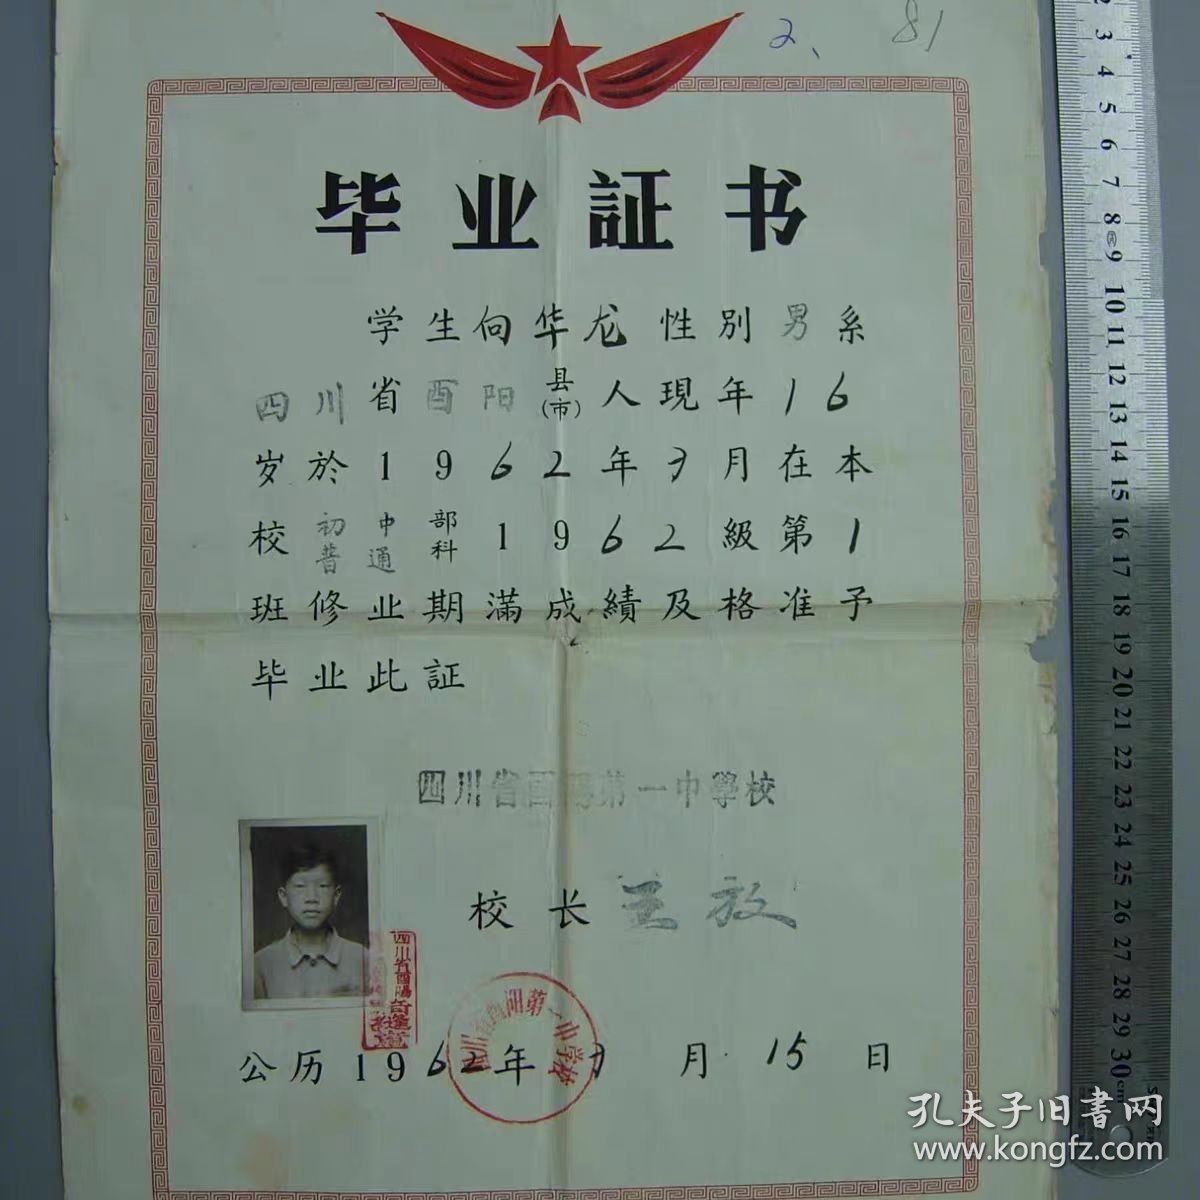 2、 81
毕业証书
学生向华龙性別男系
四川省酉阳县(市)人現年16
岁於1962年7月在本
校初中部普通科1962級第1
班修业期滿成績及格准予
毕业此証
四川省酉陽第一中學校
校长 王放
四川省酉陽
四川省酉阳第一中学校
公历1962年7月15日
孔夫子旧書网
www.kongfz.com
2 3 4 5 6 7 8 9 10 11 12 13 14 15 16 17 18 19 20 21 22 23 24 25 26 27 28 29 30cm